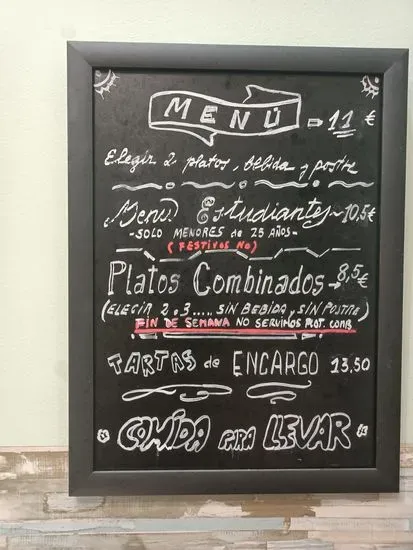 MENÚ → 11 €
Elegir 2 platos, bebida y postre
Menú Estudiantes - 10,5€
- SOLO MENORES de 25 AÑOS -
( FESTIVOS NO )
Platos Combinados → 8,5€
(ELEGIR 2 ó 3..... SIN BEBIDA y SIN POSTRE)
FIN DE SEMANA NO SERVIMOS PLAT. COMB
TARTAS de ENCARGO 13,50
COMÍDA PARA LLEVAR